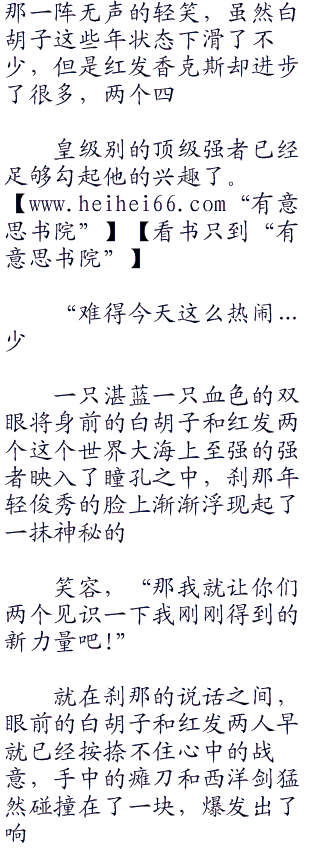 那一阵无声的轻笑，虽然白
胡子这些年状态下滑了不
少，但是红发香克斯却进步
了很多，两个四
皇级别的顶级强者已经
足够勾起他的兴趣了。
【www.heihei66.com“有意
思书院”】【看书只到“有
意思书院”】
“难得今天这么热闹…
少
一只湛蓝一只血色的双
眼将身前的白胡子和红发两
个这个世界大海上至强的强
者映入了瞳孔之中，刹那年
轻俊秀的脸上渐渐浮现起了
一抹神秘的
笑容，“那我就让你们
两个见识一下我刚刚得到的
新力量吧!”
就在刹那的说话之间，
眼前的白胡子和红发两人早
就已经按捺不住心中的战
意，手中的瘫刀和西洋剑猛
然碰撞在了一块，爆发出了
响